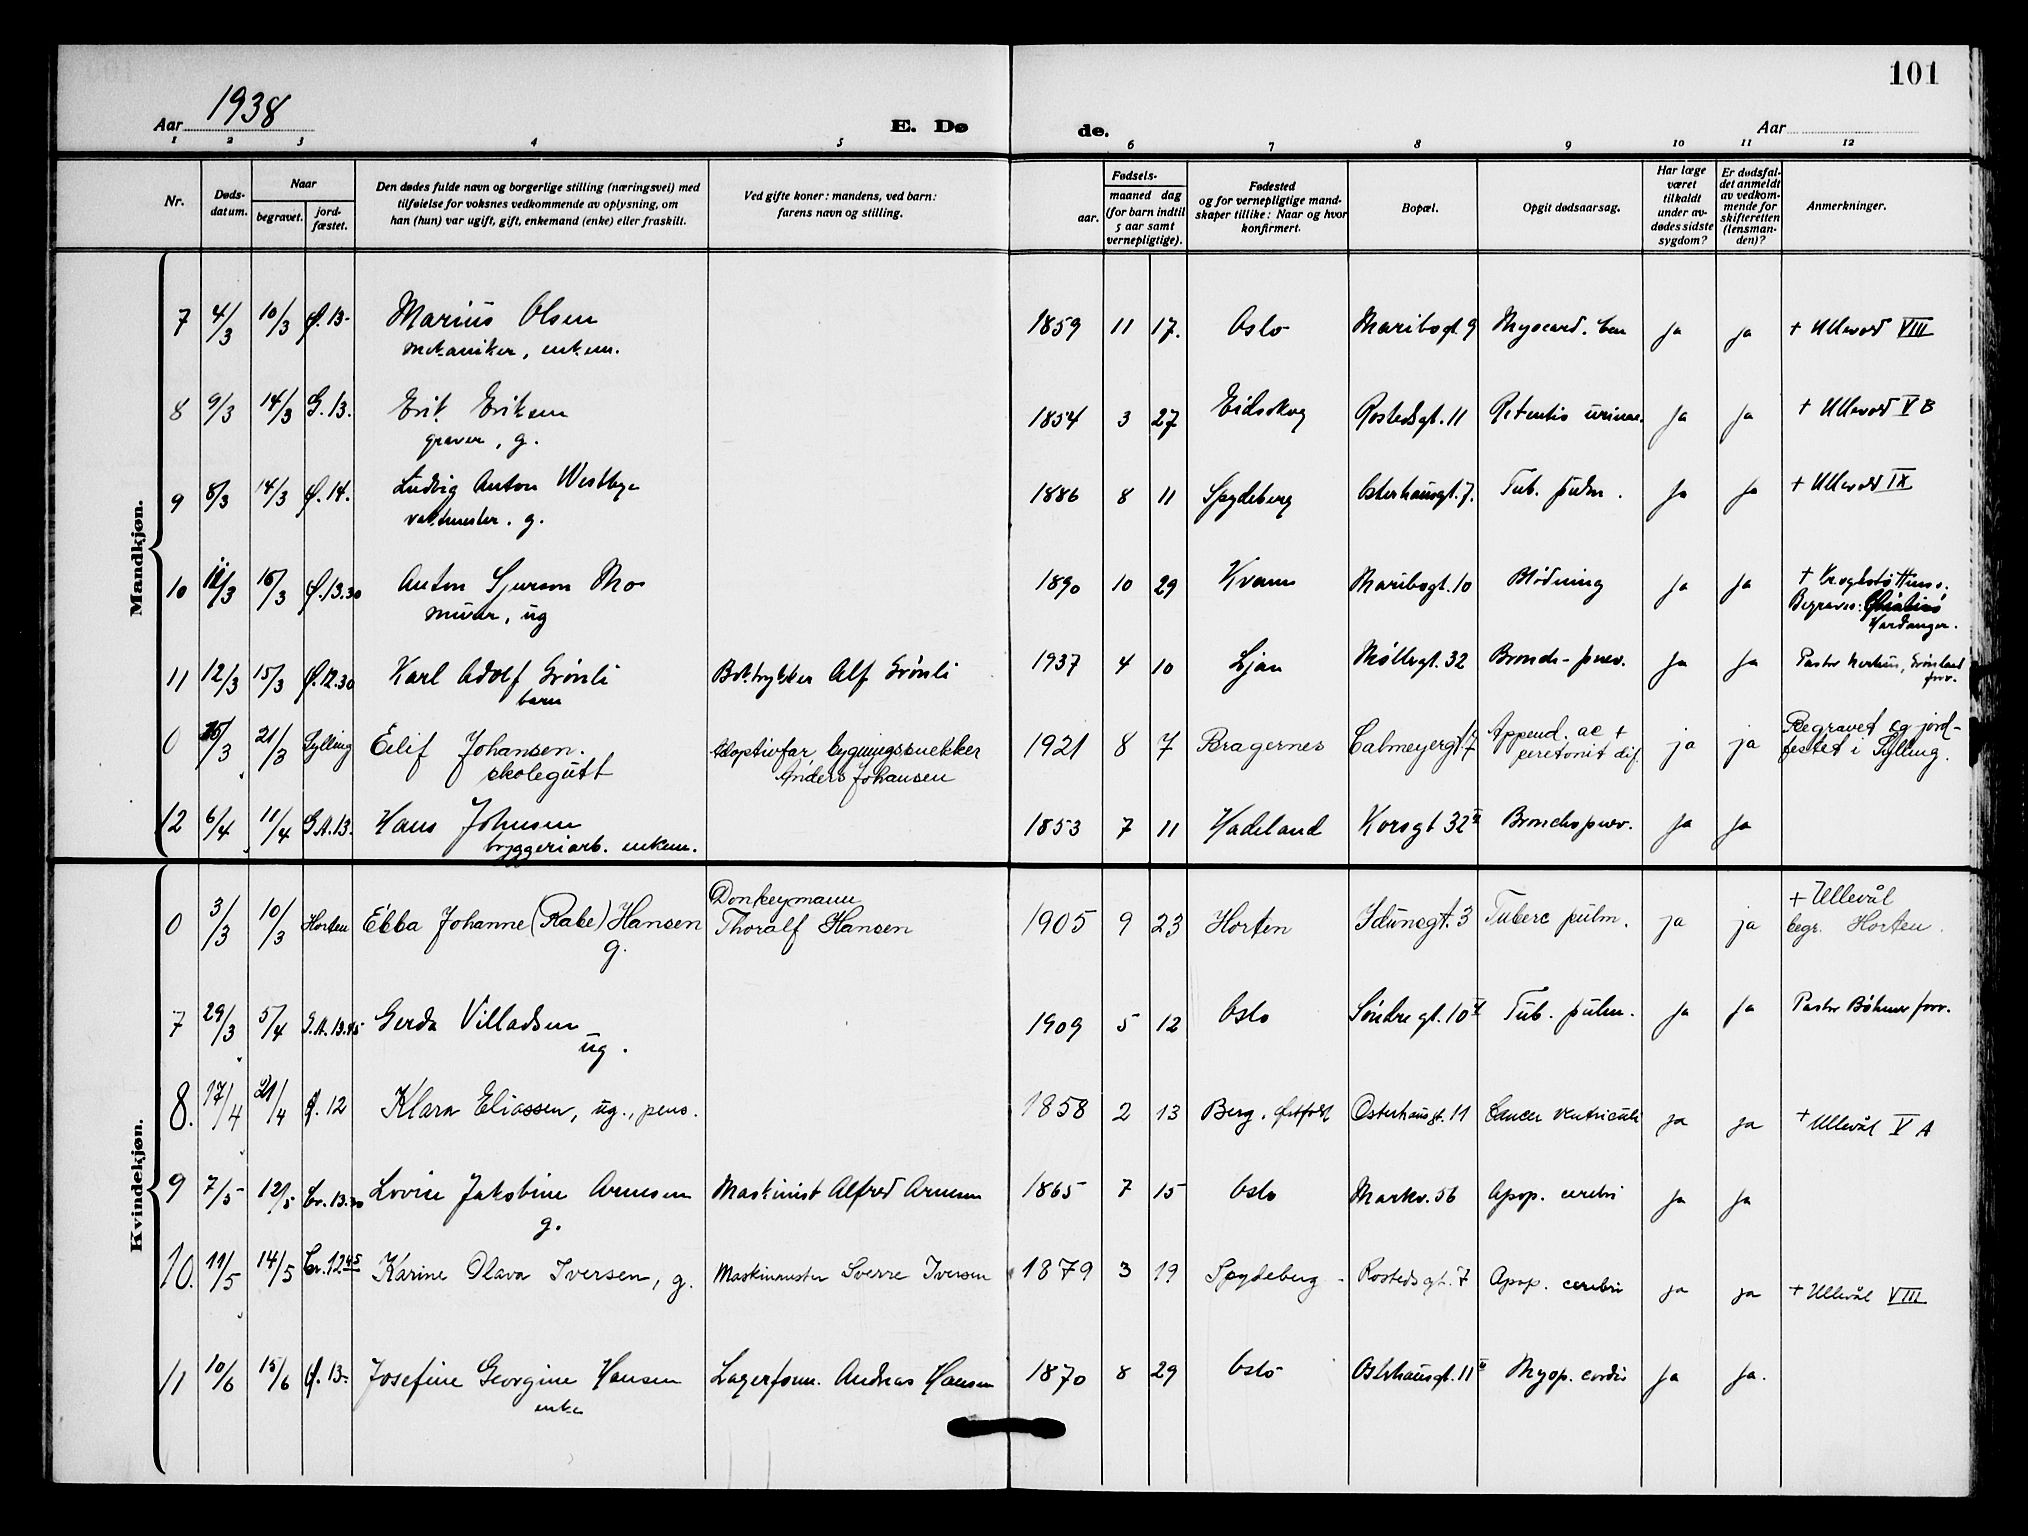 101
Aar 1938 E. Dø de. Aar
1 2 3 4 5 6 7 8 9 10 11 12
Nr. Døds-datum. Naar begravet. jord-fæstet. Den dødes fulde navn og borgerlige stilling (næringsvei) med tilføielse for voksnes vedkommende av oplysning, om han (hun) var ugift, gift, enkemand (enke) eller fraskilt. Ved gifte koner: mandens, ved barn: farens navn og stilling. Fødsels- aar. maaned dag (for barn indtil 5 aar samt vernepligtige). Fødested og for vernepligtige mand-skaper tillike: Naar og hvor konfirmert. Bopæl. Opgit dødsaarsag. Har læge været tilkaldt under av-dødes sidste sygdom? Er dødsfal-det anmeldt av vedkom-mende for skifteretten (lensman-den)? Anmerkninger.
Mandkjøn.
7 4/3 10/3 Ø. 13- Marius Olsen 1859 11 17. Oslo Maribogt. 9 Myocard. ja ja + Ullevål VIII
mekaniker, enkem.
8 9/3 14/3 G. 13. Erik Eriksen 1854 3 27 Eidsskog Rostedsgt. 11 Retentio urinae. ja ja + Ullevål V B
graver, g.
9 8/3 14/3 Ø. 14. Ludvig Anton Westbye 1886 8 11 Spydeberg Osterhausgt. 7. Tub. pulm. ja ja + Ullevål IX
vaktmester. g.
10 /3 16/3 Ø. 13.30 Anton Sjurson Mo 1890 10 29 Kvam Maribogt. 10 Blødning ja ja + Krogstøttens.
murer, ug Begraves: Hardanger.
11 12/3 15/3 Ø. 12.30 Karl Adolf Grønli Boktrykker Alf Grønli 1937 4 10 Ljan Møllergt. 32 Bronch-pnev. ja ja Pastor Grønland
barn forr.
0 /3 21/3 Sylling Eilif Johansen. Adoptivfar bygningssnekker 1921 8 7 Bragernes Calmeyergt. 7 Append. ac + ja ja Begravet og jord-
skolegutt Anders Johansen peretonit dif. festet i Sylling.
12 6/4 11/4 G.A. 13. Hans Johnsen 1853 7 11 Hadeland Korsgt 32 II Bronchopnev. ja ja
bryggeriarb. enkem.
Kvindekjøn.
0 3/3 10/3 Horten Ebba Johanne (Rabe) Hansen Donkeymann 1905 9 23 Horten Idunsgt. 3 Tuberc pulm. ja ja + Ullevål
g. Thoralf Hansen begr. Horten.
7 29/3 5/4 G.A. 13.45 Gerda Villadsen 1909 5 12 Oslo Søndre gt. 10 Tub. pulm. ja ja Pastor Bøhmer forr.
ug.
8. 17/4 21/4 Ø. 12 Klara Eliassen, ug., pens. 1858 2 13 Berg, Østfold Osterhausgt. 11 Cancer ventriculi ja ja + Ullevål V A
9 7/5 12/5 Cr. 13.30 Lovise Jakobine Arnesen Maskinist Alfred Arnesen 1865 7 15 Oslo Markv. 56 Apop. cerebri ja ja
g.
10. 11/5 14/5 Cr. 12 45 Karine Olava Iversen, g. Maskinmester Sverre Iversen 1879 3 19 Spydeberg Rostedsgt. 7 Apop. cerebri ja ja + Ullevål VIII
11 10/6 15/6 Ø. 13- Josefine Georgine Hansen Lagerform. Andreas Hansen 1870 8 29 Oslo Osterhausgt. 11 II Myop. cordis ja ja.
enke